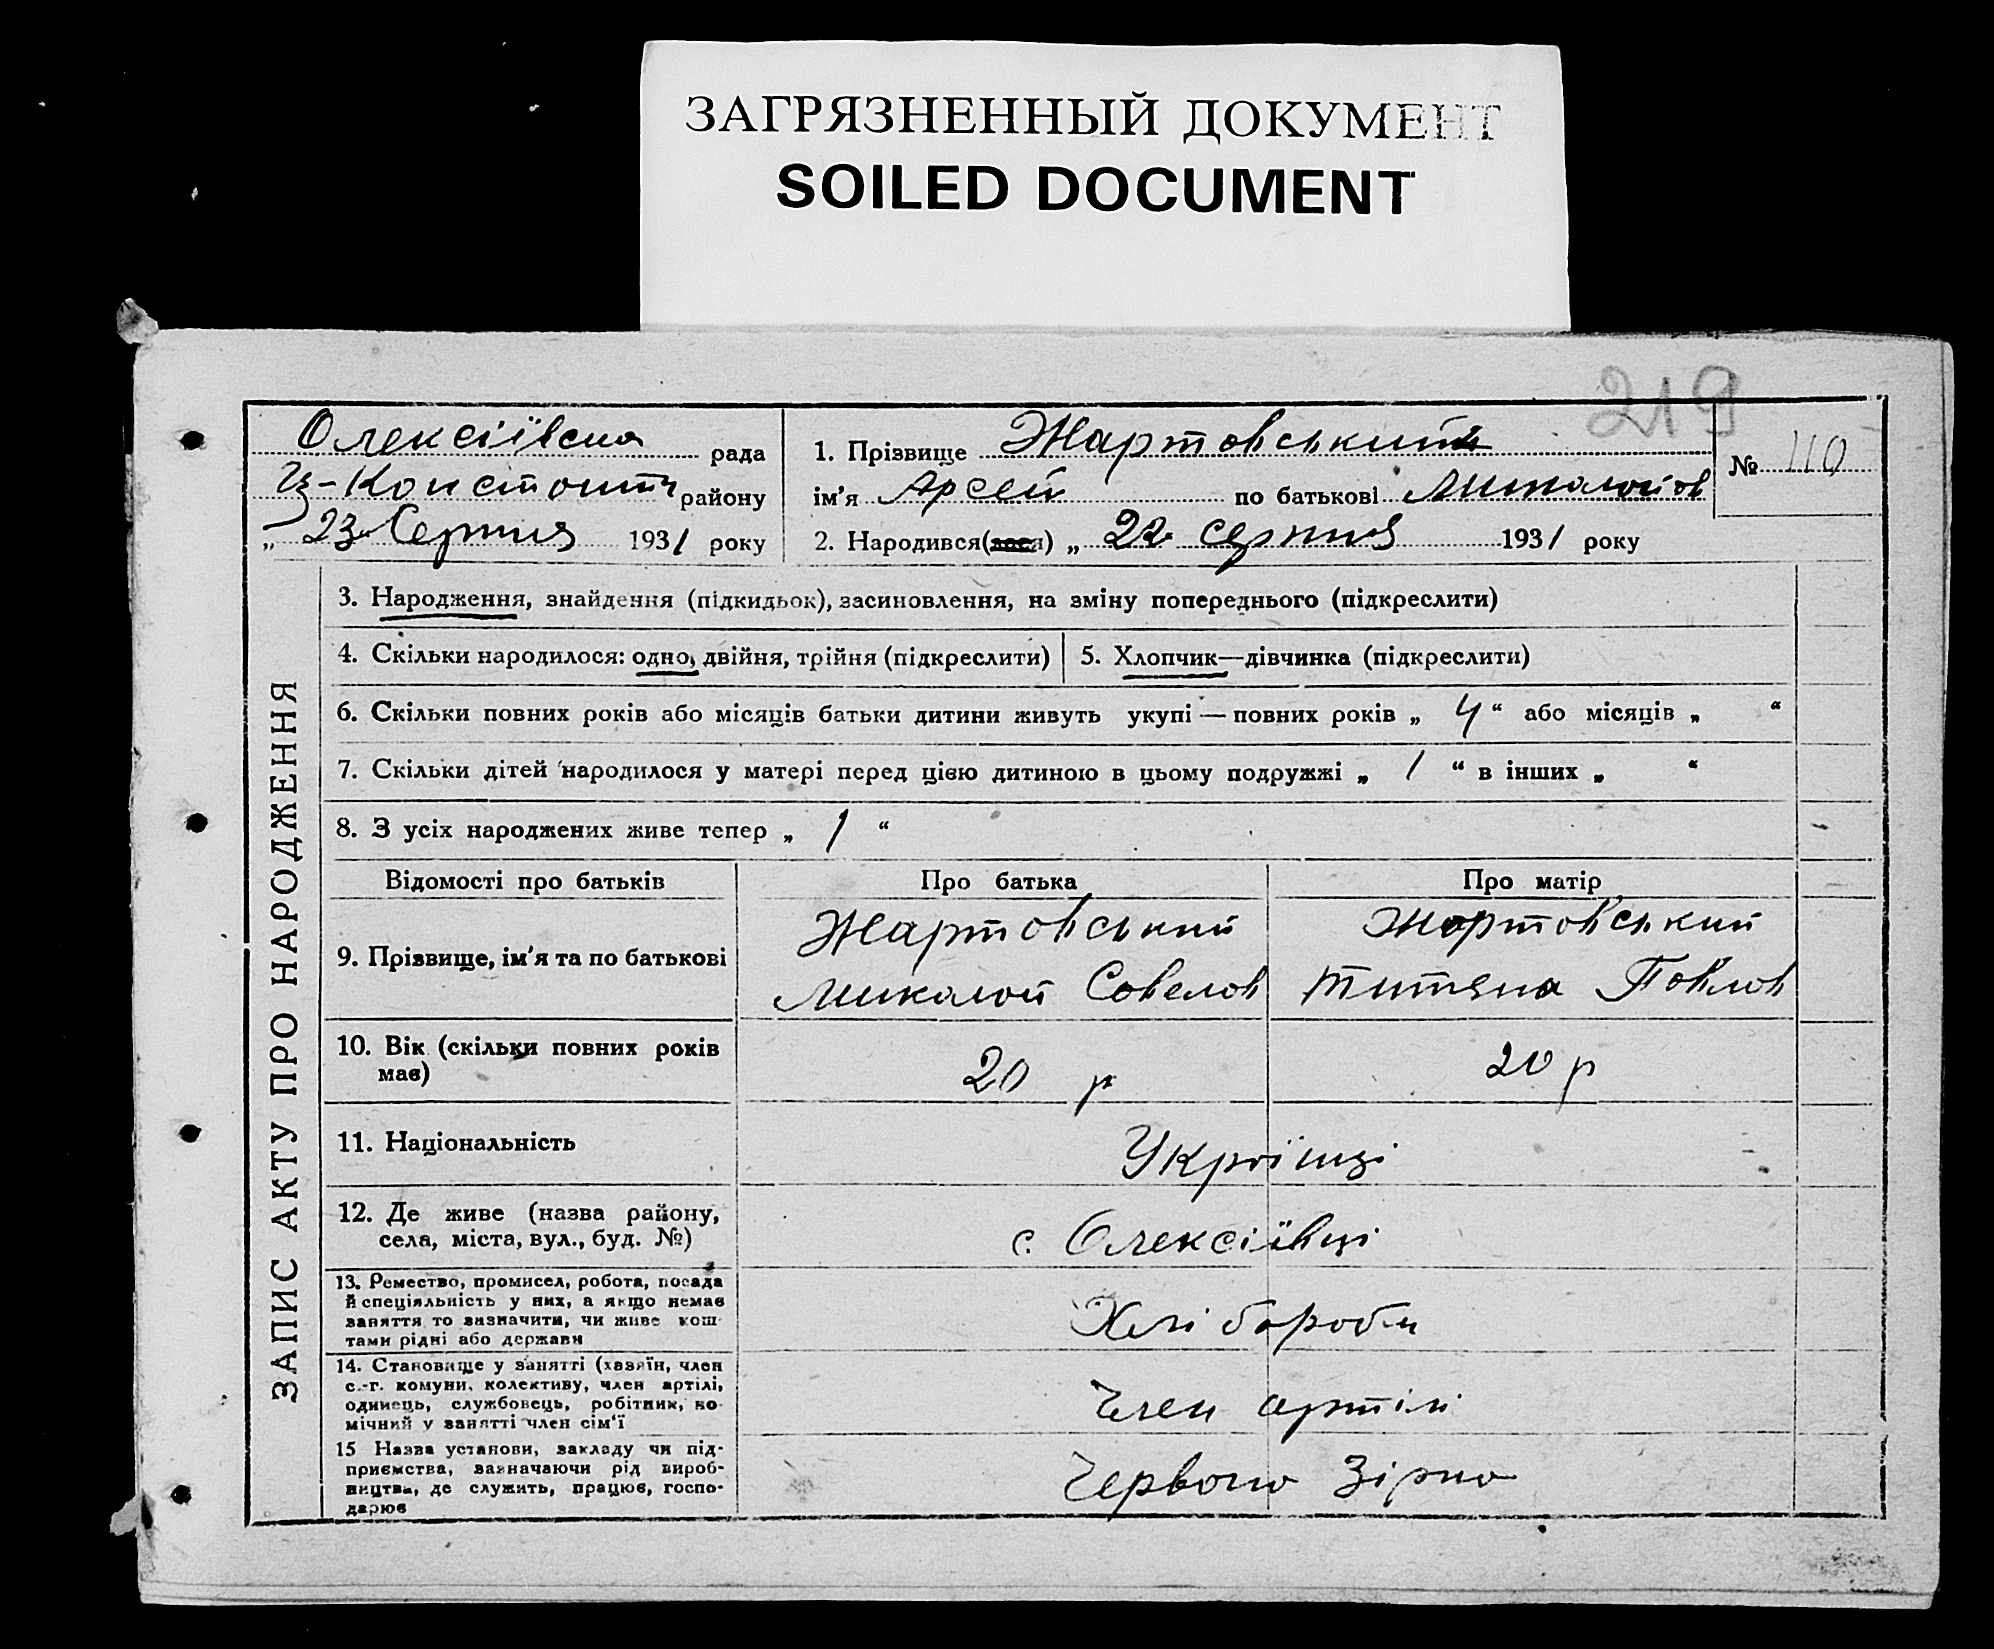 ЗАГРЯЗНЕННЫЙ ДОКУМЕНТ
SOILED DOCUMENT
219
Олексіївська рада
района
„ 23 Серпня 1931 року
1. Прізвище Жартовський
ім'я Арсей по батькові Миколайов
№ 110
2. Народився(лася) „ 22 серпня 1931 року
ЗАПИС АКТУ ПРО НАРОДЖЕННЯ
3. Народження, знайдення (підкидьок), засиновлення, на зміну попереднього (підкреслити)
4. Скільки народилося: одно, двійня, трійня (підкреслити)
5. Хлопчик—дівчинка (підкреслити)
6. Скільки повних років або місяців батьки дитини живуть укупі — повних років „ 4 “ або місяців „ “
7. Скільки дітей народилося у матері перед цією дитиною в цьому подружжі „ 1 “ в інших „ “
8. З усіх народжених живе тепер „ 1 “
Відомості про батьків
Про батька
Про матір
9. Прізвище, ім'я та по батькові
Жартовський
Миколай Совелов
Жортовський
Титяна Повлов
10. Вік (скільки повних років
має)
20 р
20 р
11. Національність
Укроїнці
12. Де живе (назва району,
села, міста, вул., буд. №)
с. Олексіївці
13. Ремество, промисел, робота, посада
й спеціяльність у них, а якщо немає
заняття то зазначити, чи живе кош-
тами рідні або держави
Хлібороби
14. Становище у занятті (хазяїн, член
с.-г. комуни, колективу, член артілі,
одинець, службовець, робітник, по-
мічний у занятті член сім'ї
Член артілі
15 Назва установи, закладу чи під-
приємства, зазначаючи рід вироб-
ництва, де служить, працює, госпо-
дарює
Червоно Зірко